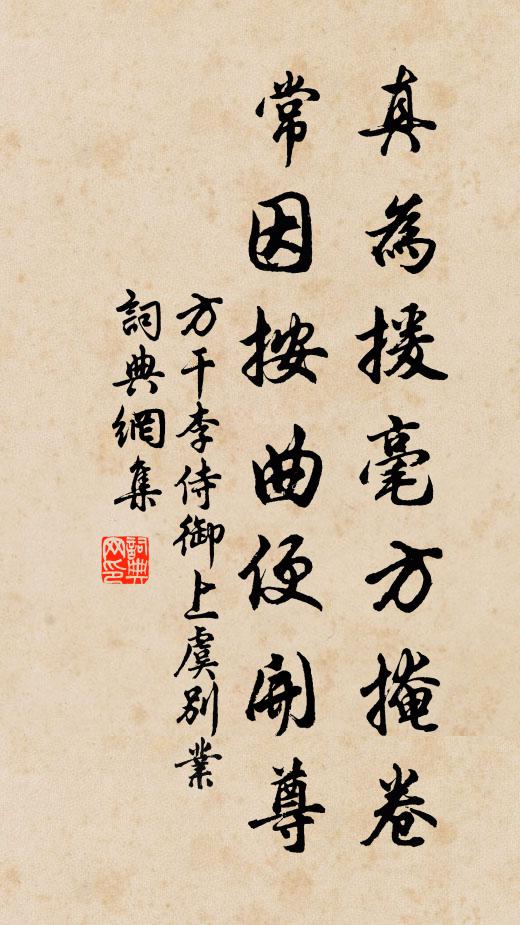 真為援毫方掩卷
常因按曲便開尊
方干李侍御上虞別業
詞典網集
詞典网印